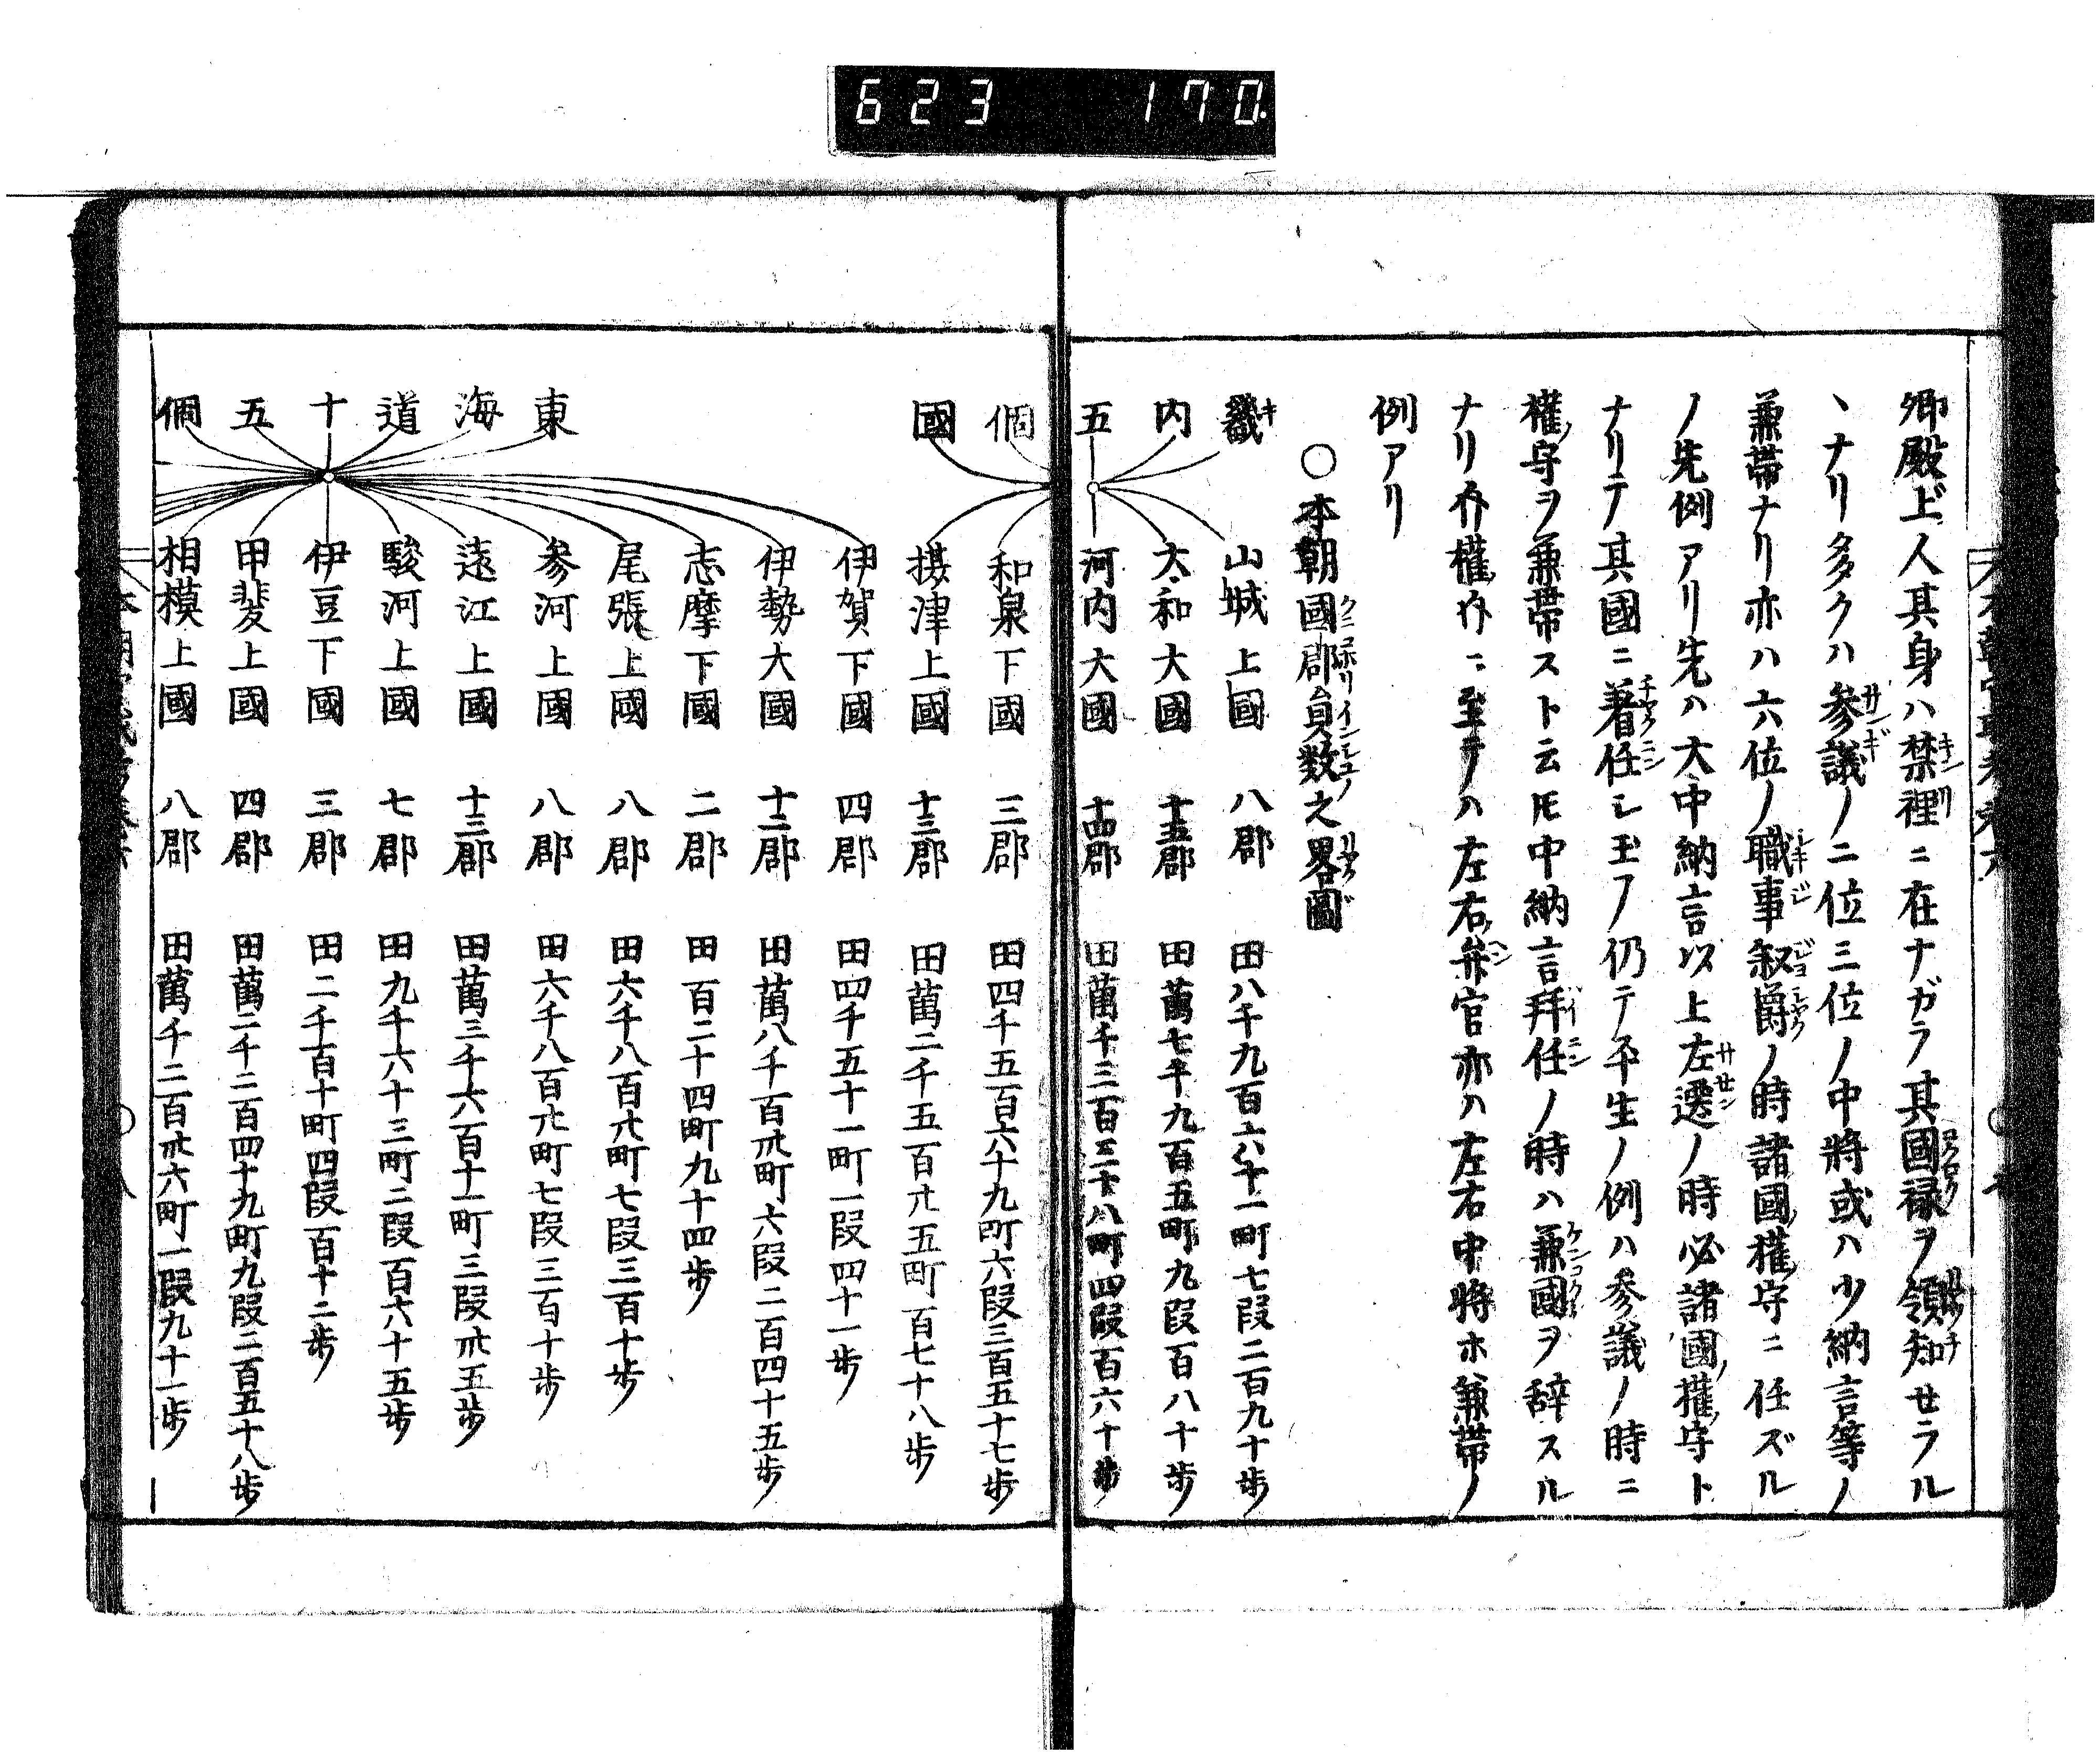 623 170.
卿殿上人其身ハ禁裡ニ在ナガラ其國禄ヲ領知せラル
丶ナリ多クハ参議ノ二位三位ノ中將或ハ少納言等ノ
兼帯ナリホハ六位ノ職事叙爵ノ時諸國ノ權守ニ任ズル
ノ先例アリ先ハ大中納言以上左遷ノ時必諸國ノ權守ト
ナリテ其國ニ著任シ玉フ仍テ平生ノ例ハ参議ノ時ニ
權ノ守ヲ兼帯スト云𪜈中納言拜任ノ時ハ兼國ヲ辞スル
ナリ介權介ニ至テハ左右弁官亦ハ左右中將ホ兼帯ノ
例アリ
〇本朝國郡員数之畧圖
畿内五個國
山城上國 八郡 田八千九百六十一町七段二百九十歩
大和大國 十五郡 田萬七千九百五町九段百八十歩
河内大國 十四郡 田萬千三百三十八町四段百六十歩
和泉下國 三郡 田四千五百六十九町六段三百五十七歩
摂津上國 十三郡 田萬二千五百廿五町百七十八歩
東海道十五個
伊賀下國 四郡 田四千五十一町一段四十一歩
伊勢大國 十三郡 田萬八千百卅町六段二百四十五歩
志摩下國 二郡 田百二十四町九十四歩
尾張上國 八郡 田六千八百廿町七段三百十歩
参河上國 八郡 田六千八百廿町七段三百十歩
遠江上國 十三郡 田萬三千六百十一町三段卅五歩
駿河上國 七郡 田九千六十三町二段百六十五歩
伊豆下國 三郡 田二千百十町四段百十二歩
甲斐上國 四郡 田萬二千二百四十九町九段二百五十八歩
相模上國 八郡 田萬千二百卅六町一段九十一歩